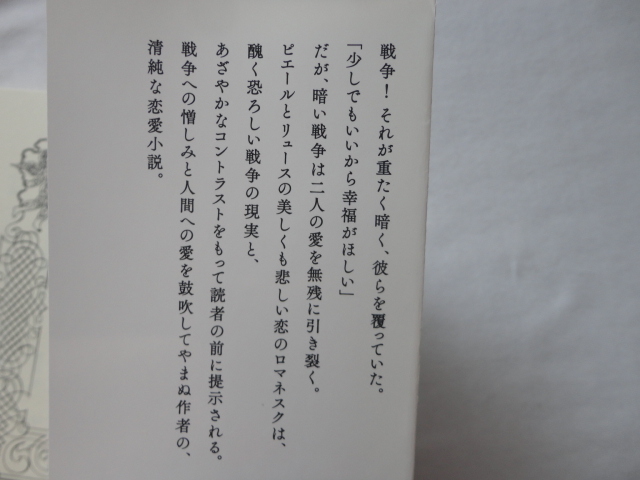 戦争！それが重たく暗く、彼らを覆っていた。
「少しでもいいから幸福がほしい」
だが、暗い戦争は二人の愛を無残に引き裂く。
ピエールとリュースの美しくも悲しい恋のロマネスクは、
醜く恐ろしい戦争の現実と、
あざやかなコントラストをもって読者の前に提示される。
戦争への憎しみと人間への愛を鼓吹してやまぬ作者の、
清純な恋愛小説。